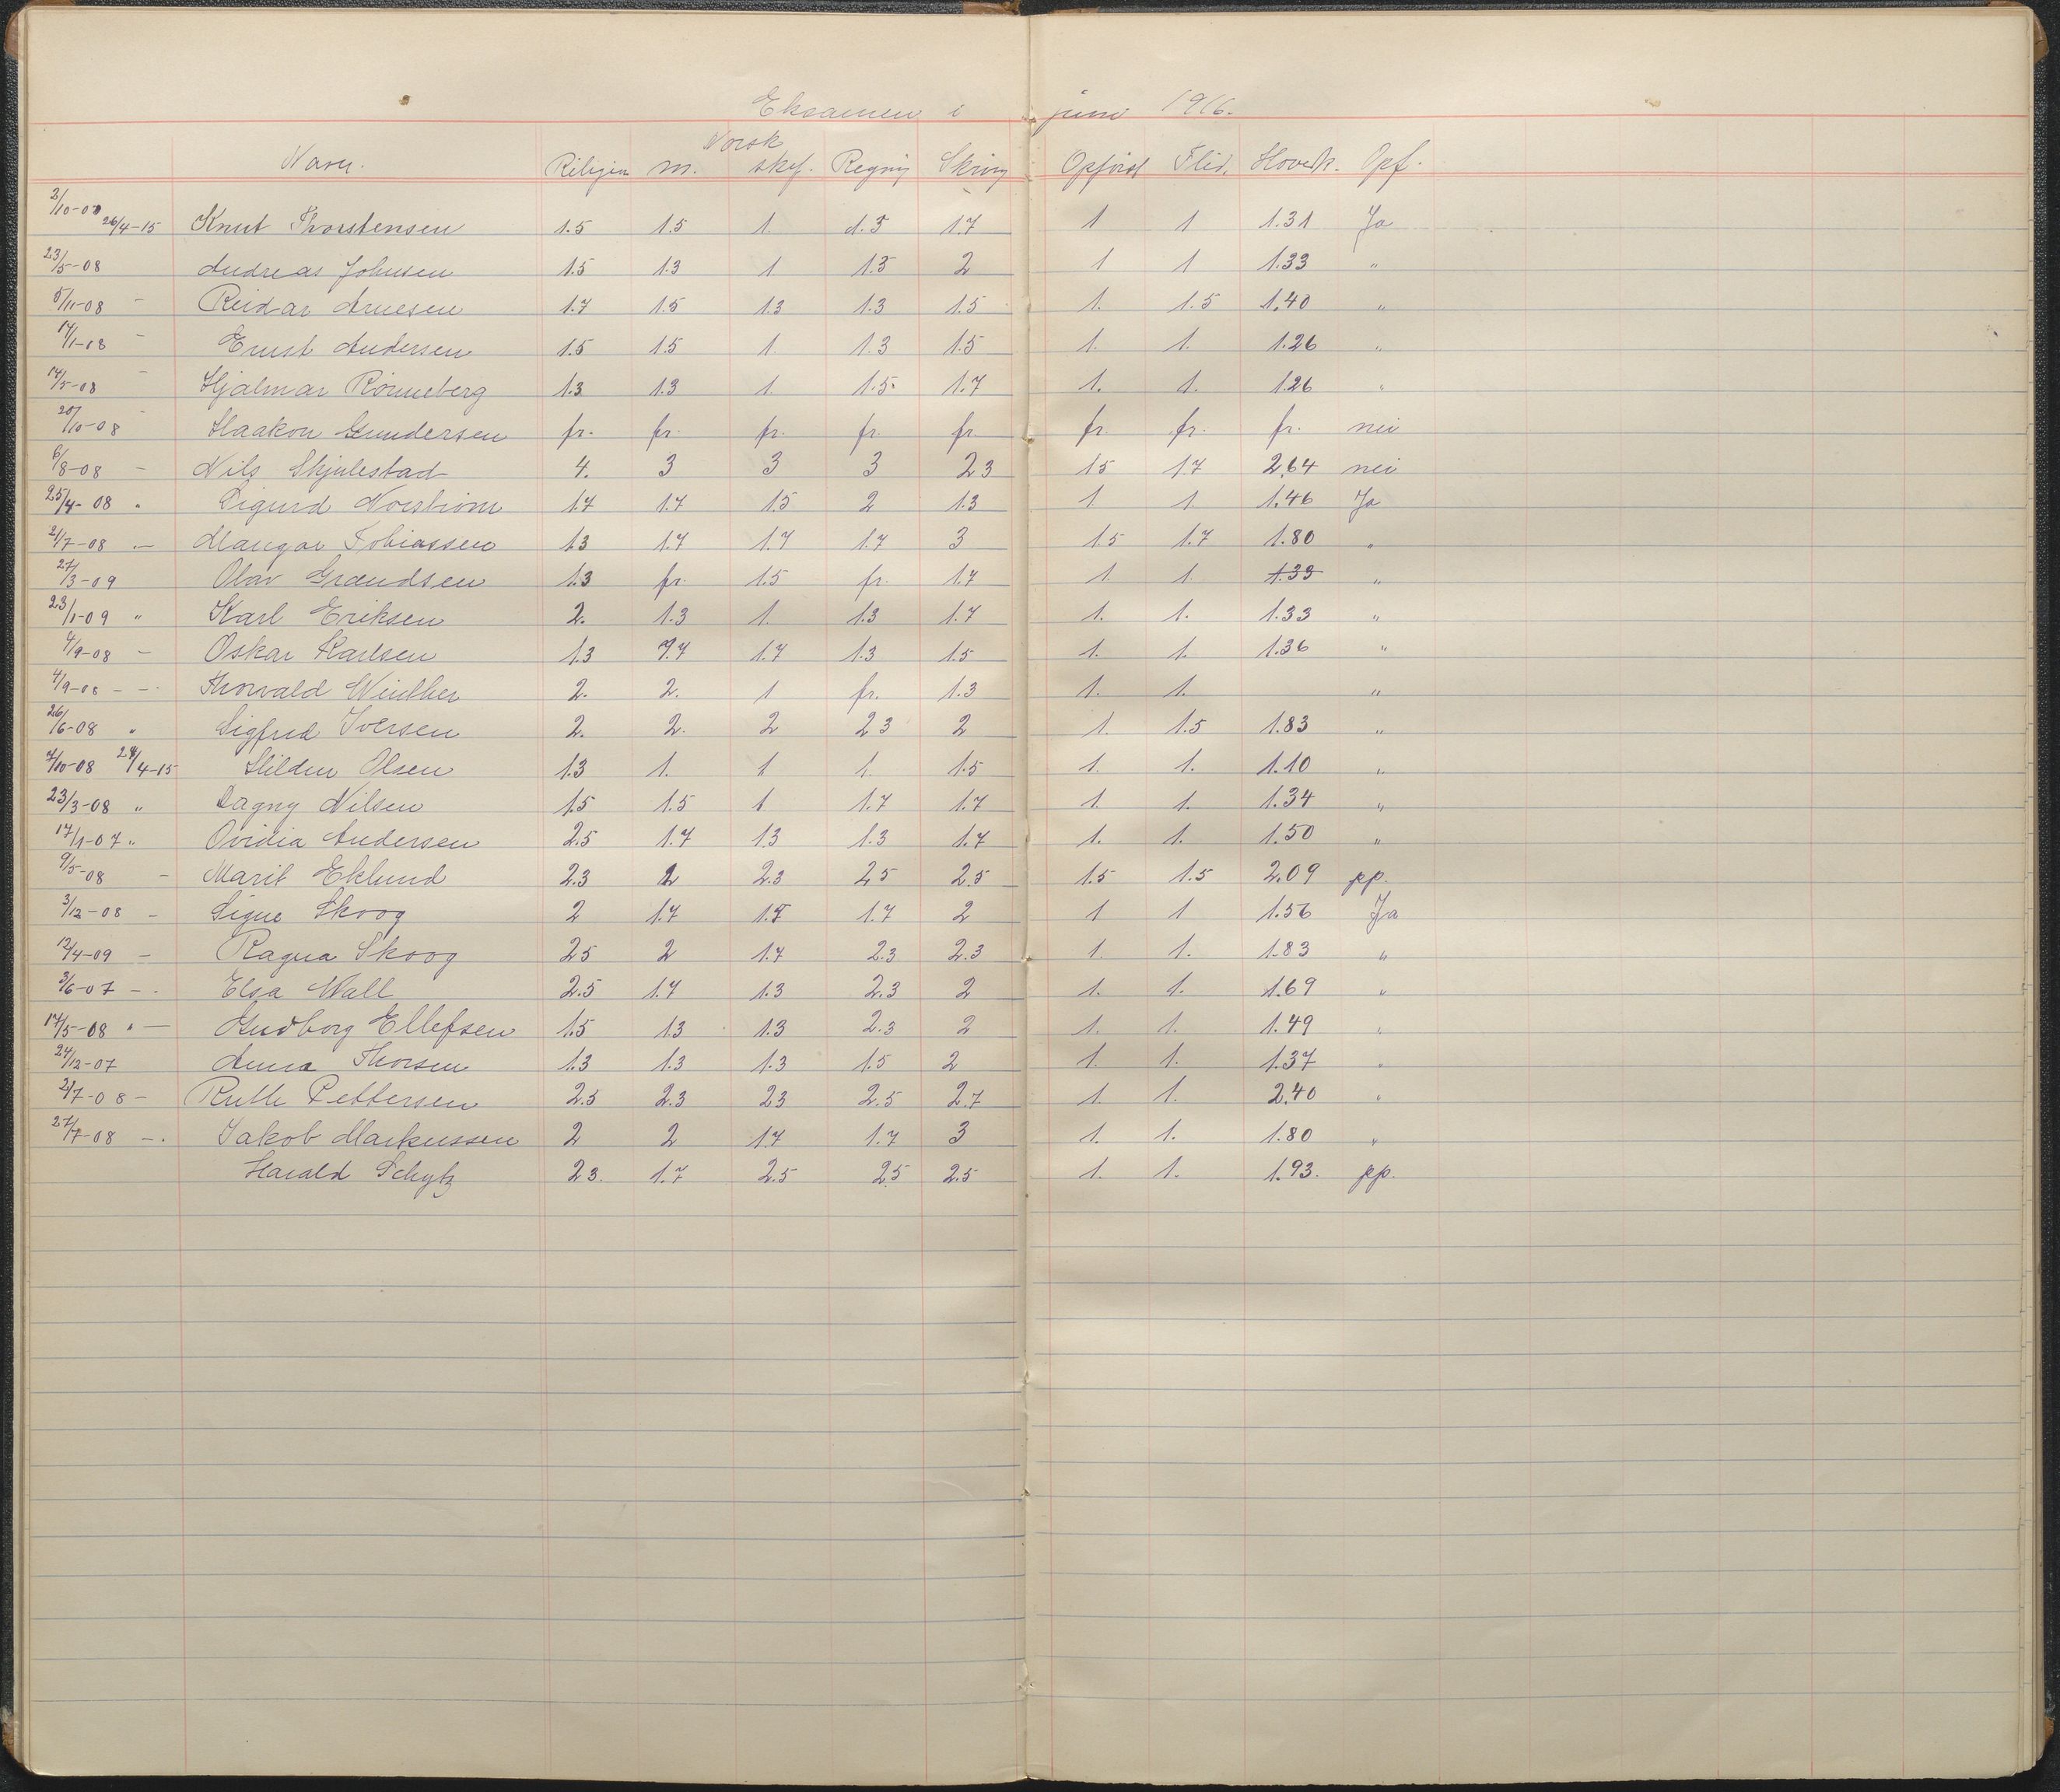 Eksamen i juni 1916.
Navn. Religion Norsk m. skf. Regning Skrivn Opførsl Flid. Hovedk. Opf.
2/10-07 26/4-15 Knut Thorstensen 1.5 1.5 1. 1.5 1.7 1 1 1.31 Ja
23/5-08 Andreas Johnsen 1.5 1.3 1 1.3 2 1 1 1.33 "
5/11-08 - Reidar Arnesen 1.7 1.5 1.3 1.3 1.5 1. 1.5 1.40 "
14/1-08 - Ernst Andersen 1.5 1.5 1. 1.3 1.5 1. 1. 1.26 "
14/5-08 - Hjalmar Rønneberg 1.3 1.3 1. 1.5 1.7 1. 1. 1.26 "
20/10-08 - Haakon Gundersen fr. fr. fr. fr. fr fr. fr. fr. nei
6/8-08 - Nils Skjulestad 4. 3 3 3 2.3 1.5 1.7 2.64 nei
25/4-08 " Sigurd Norstrøm 1.7 1.7 1.5 2 1.3 1 1. 1.46 Ja
21/7-08 - Mangor Tobiassen 1.3 1.7 1.7 1.7 3 1.5 1.7 1.80 "
27/3-09 Olav Grandsen 1.3 fr. 1.5 fr. 1.7 1. 1. 1.33 "
23/1-09 " Karl Eriksen 2. 1.3 1. 1.3 1.7 1. 1. 1.33 "
4/9-08 - Oskar Karlsen 1.3 1.7 1.7 1.3 1.5 1. 1. 1.36 "
4/9-08 - -. Thorvald Winther 2. 2. 1 fr. 1.3 1. 1. "
26/6-08 " Sigfred Iversen 2. 2. 2 2 3 2 1. 1.5 1.83 "
7/10-08 28/4-15 Hildur Olsen 1.3 1. 1 1. 1.5 1. 1. 1.10 "
23/3-08 " Dagny Nilsen 1.5 1.5 1 1.7 1.7 1. 1. 1.34 "
17/1-07 " Ovidia Andersen 2.5 1.7 1.3 1.3 1.7 1. 1. 1.50 "
9/5-08 - Marit Eklund 2.3 2 2.3 2.5 2.5 1.5 1.5 2.09 pp.
3/12-08 - Signe Skoog 2 1.7 1.7 1.7 2 1 1 1.56 Ja
12/4-09 - Ragna Skoog 2.5 2 1.7 2.3 2.3 1. 1. 1.83 "
3/6-07 -. Elsa Wall 2.5 1.7 1.3 2.3 2 1. 1. 1.69 "
17/5-08 " - Gudborg Ellefsen 1.5 1.3 1.3 2.3 2 1. 1. 1.49 "
24/12-07 Anna Thorsen 1.3 1.3 1.3 1.5 2 1. 1. 1.37 "
2/7-08 - Ruth Pettersen 2.5 2.3 2.3 2.5 2.7 1. 1. 2.40 "
27/7-08 -. Jakob Markussen 2 2 1.7 1.7 3 1. 1. 1.80 "
Harald Schytz 2 3. 1.7 2.5 2.5 2.5 1. 1. 1.93. pp.